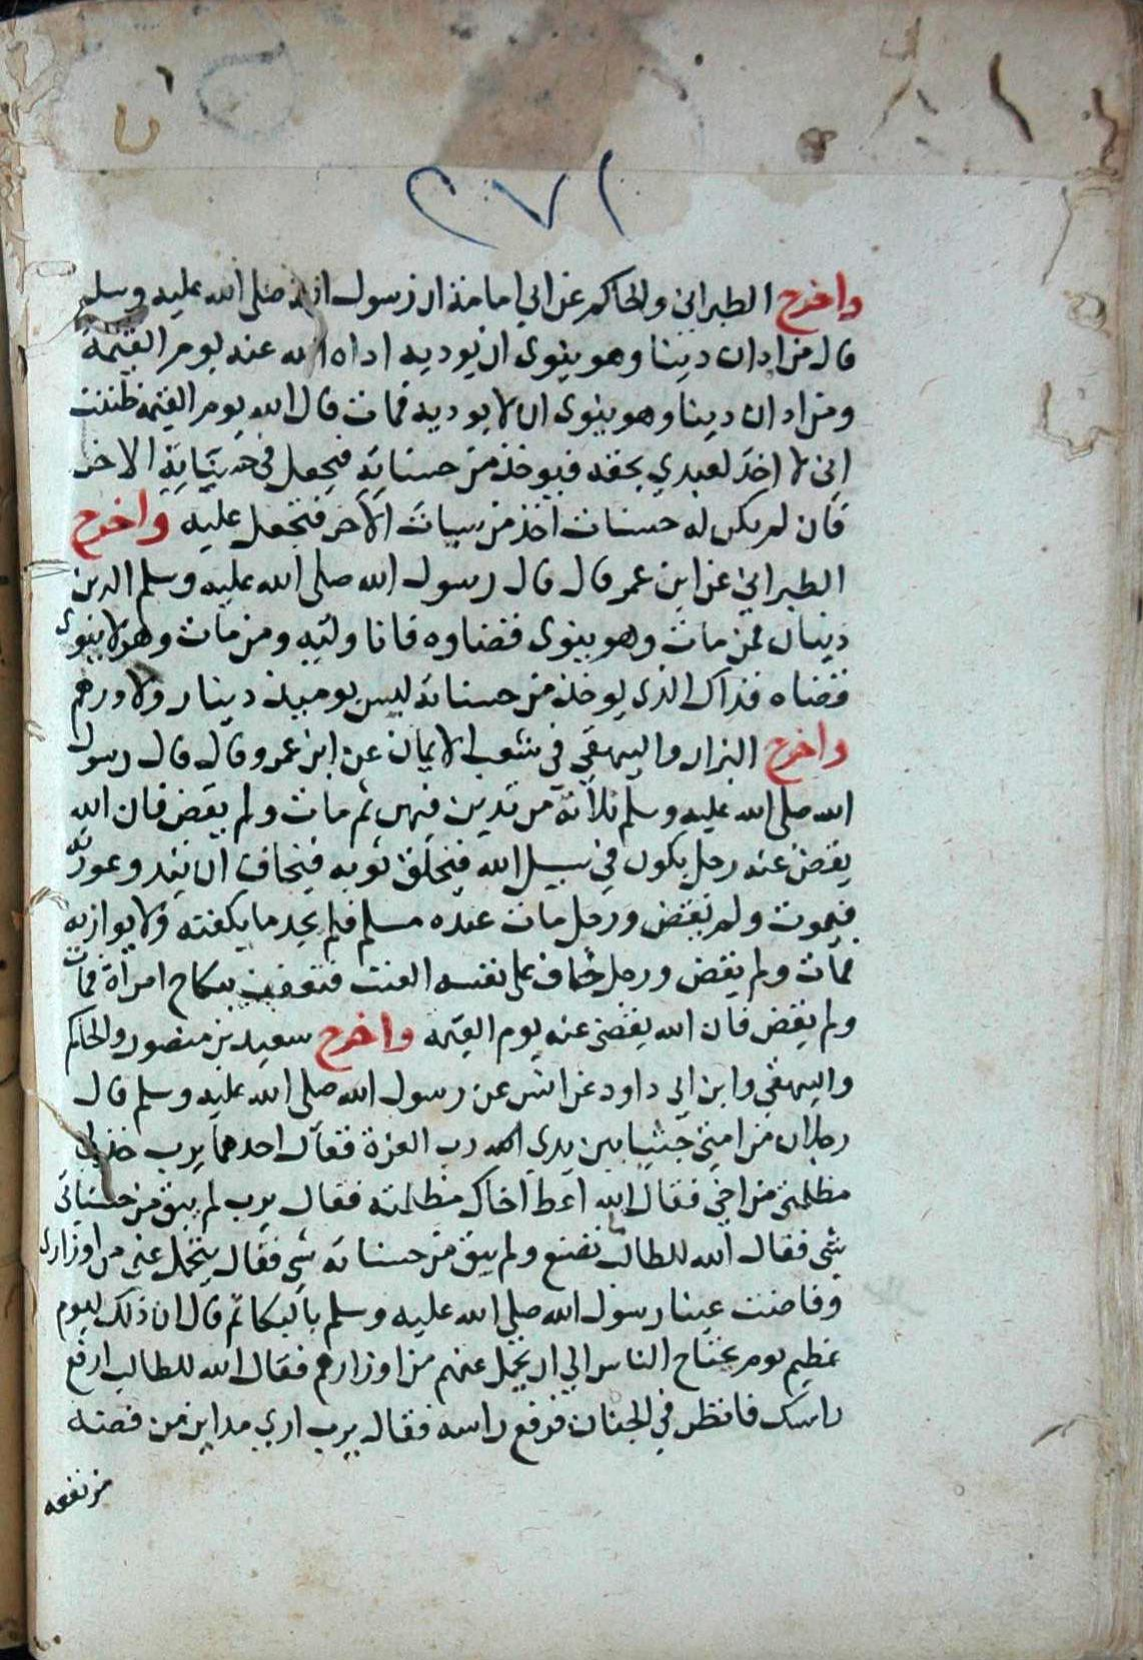 ٢٧١
واخرج الطبراني والحاكم عن ابي امامة ان رسول الله صلى الله عليه وسلم
قال من ادان دينا وهو ينوى ان يوديه اداه الله عنه يوم القيمة
ومن ادان دينا وهو ينوى ان لا يوديه فمات قال الله يوم القيمة ظننت
انى لا اخذ لعبدي بحقه فيوخذ من حسناته فيجعل في حسناته الاخر
فان لم يكن له حسنات اخذ من سيات الاخر فتجعل عليه واخرج
الطبراني عن ابن عمر قال قال رسول الله صلى الله عليه وسلم الدين
دينان فمن مات وهو ينوى قضاوه فانا وليه ومن مات وهو لا ينوى
قضاه فذاك الذى يوخذ من حسناته ليس يوميذ دينار ولا درهم
واخرج البزار والبيهقي في شعب الايمان عن ابن عمرو قال قال رسول
الله صلى الله عليه وسلم ثلاثة من تدين فيهن ثم مات ولم يقض فان الله
يقضى عنه رجل يكون في سبيل الله فيخلق ثوبه فيخاف ان تبدو عورته
فيموت ولم يقض ورجل مات عنده مسلم فلم يجد ما يكفنه ولا يواريه
فمات ولم يقض ورجل خاف على نفسه العنت فتعفف بنكاح امراة فمات
ولم يقض فان الله يقضى عنه يوم القيمة واخرج سعيد بن منصور والحاكم
والبيهقي وابن ابي داود عن انس عن رسول الله صلى الله عليه وسلم قال
رجلان من امتي جثيا بين يدي الله رب العزة فقال احدهما يرب خذ لي
مظلمتي من اخي فقال الله اعط اخاك مظلمته فقال يرب لم يبق من حسناتي
شي فقال الله للطالب تصنع ولم يبق من حسناته شي فقال يتحمل عني من اوزاري
وفاضت عينا رسول الله صلي الله عليه وسلم بالبكا ثم قال ان ذلك ليوم
عظيم يوم يحتاج الناس الي ان يحمل عنهم من اوزارهم فقال الله للطالب ارفع
راسك فانظر في الجنان فرفع راسه فقال يرب اري مداين من فضة
من نفعه